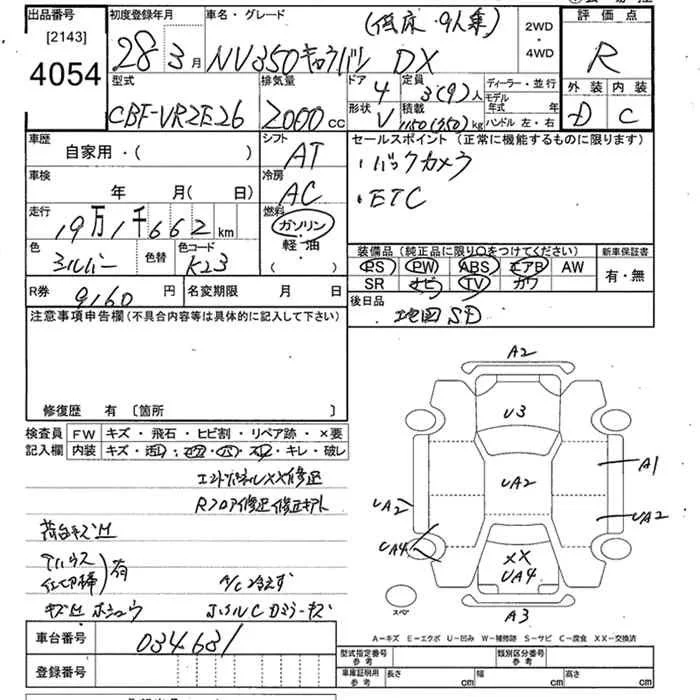 出品番号
[2143]
4054
初度登録年月
28 3月
車名・グレード
(低床・9人乗)
NV350キャラバン DX
2WD
・
4WD
評価点
R
外装 内装
D C
型式
CBF-VR2E26
排気量
2000cc
ドア
4
定員
3(9)人
ディーラー・並行
モデル年式 年
形状
V
積載
1150(950)kg
ハンドル 左・右
車歴
自家用・( )
シフト
AT
セールスポイント(正常に機能するものに限ります)
・バックカメラ
・ETC
車検
年 月( 日)
冷房
AC
走行
19万1千662km
燃料
ガソリン
軽・油
( )
色
シルバー
色替
色コード
K23
装備品(純正品に限り○をつけてください)
PS PW ABS エアB AW
SR ナビ TV カワ
新車保証書
有・無
R券
9160円
名変期限 月 日
後日品
地図SD
注意事項申告欄(不具合内容等は具体的に記入して下さい)
修復歴 有 〔箇所 〕
検査員記入欄
FW キズ・飛石・ヒビ割・リペア跡・×要
内装 キズ・汚レ・コゲ・穴・スレ・キレ・破レ
エンドパネルXX修正
Rフロア修正
荷台キズ凹
有
A/C冷えず
キズ凹 ホシュウ
ホイルC
A2
U3
A1
UA2
UA2
UA2
UA4
XX
UA4
A3
スペア
A-キズ E-エクボ U-凹み W-補修跡 S-サビ C-腐食 XX-交換済
車台番号
034681
登録番号
型式指定番号
参考
類別区分番号
参考
車庫証明用
参考
長さ cm
幅 cm
高さ cm